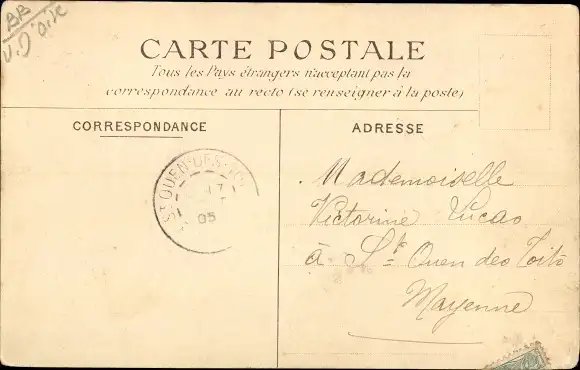 BB
V. D'aile
CARTE POSTALE
Tous les Pays étrangers n'acceptant pas la
correspondance au recto (se renseigner à la poste)
CORRESPONDANCE
ADRESSE
ST OUEN-DES-TOITS
17
05
Mademoiselle
Victorine Lucas
à St Ouen des Toits
Mayenne